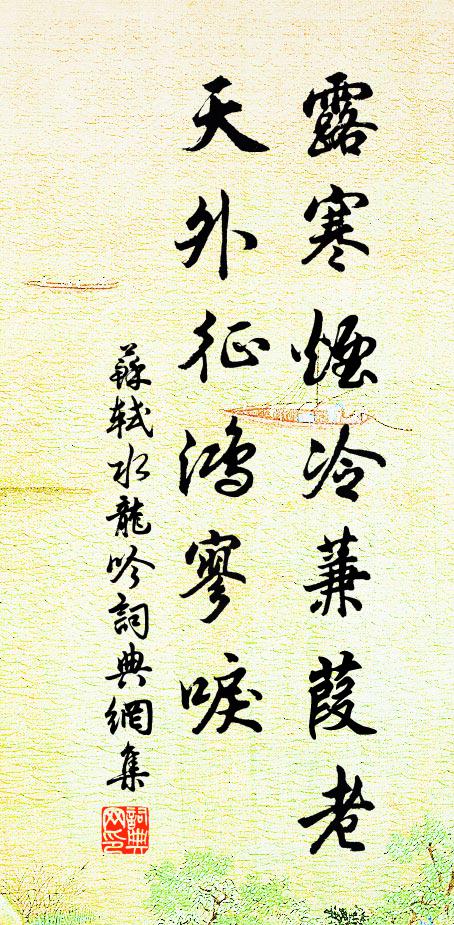 露寒煙冷蒹葭老
天外征鴻寥唳
蘇軾水龍吟詞典網集
詞典
网印